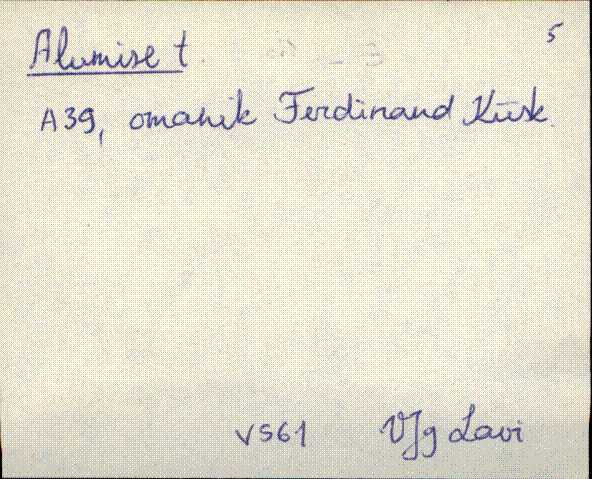 5
Alumise t.
A39, omanik Ferdinand Kiisk.
VS61 VJg Lavi